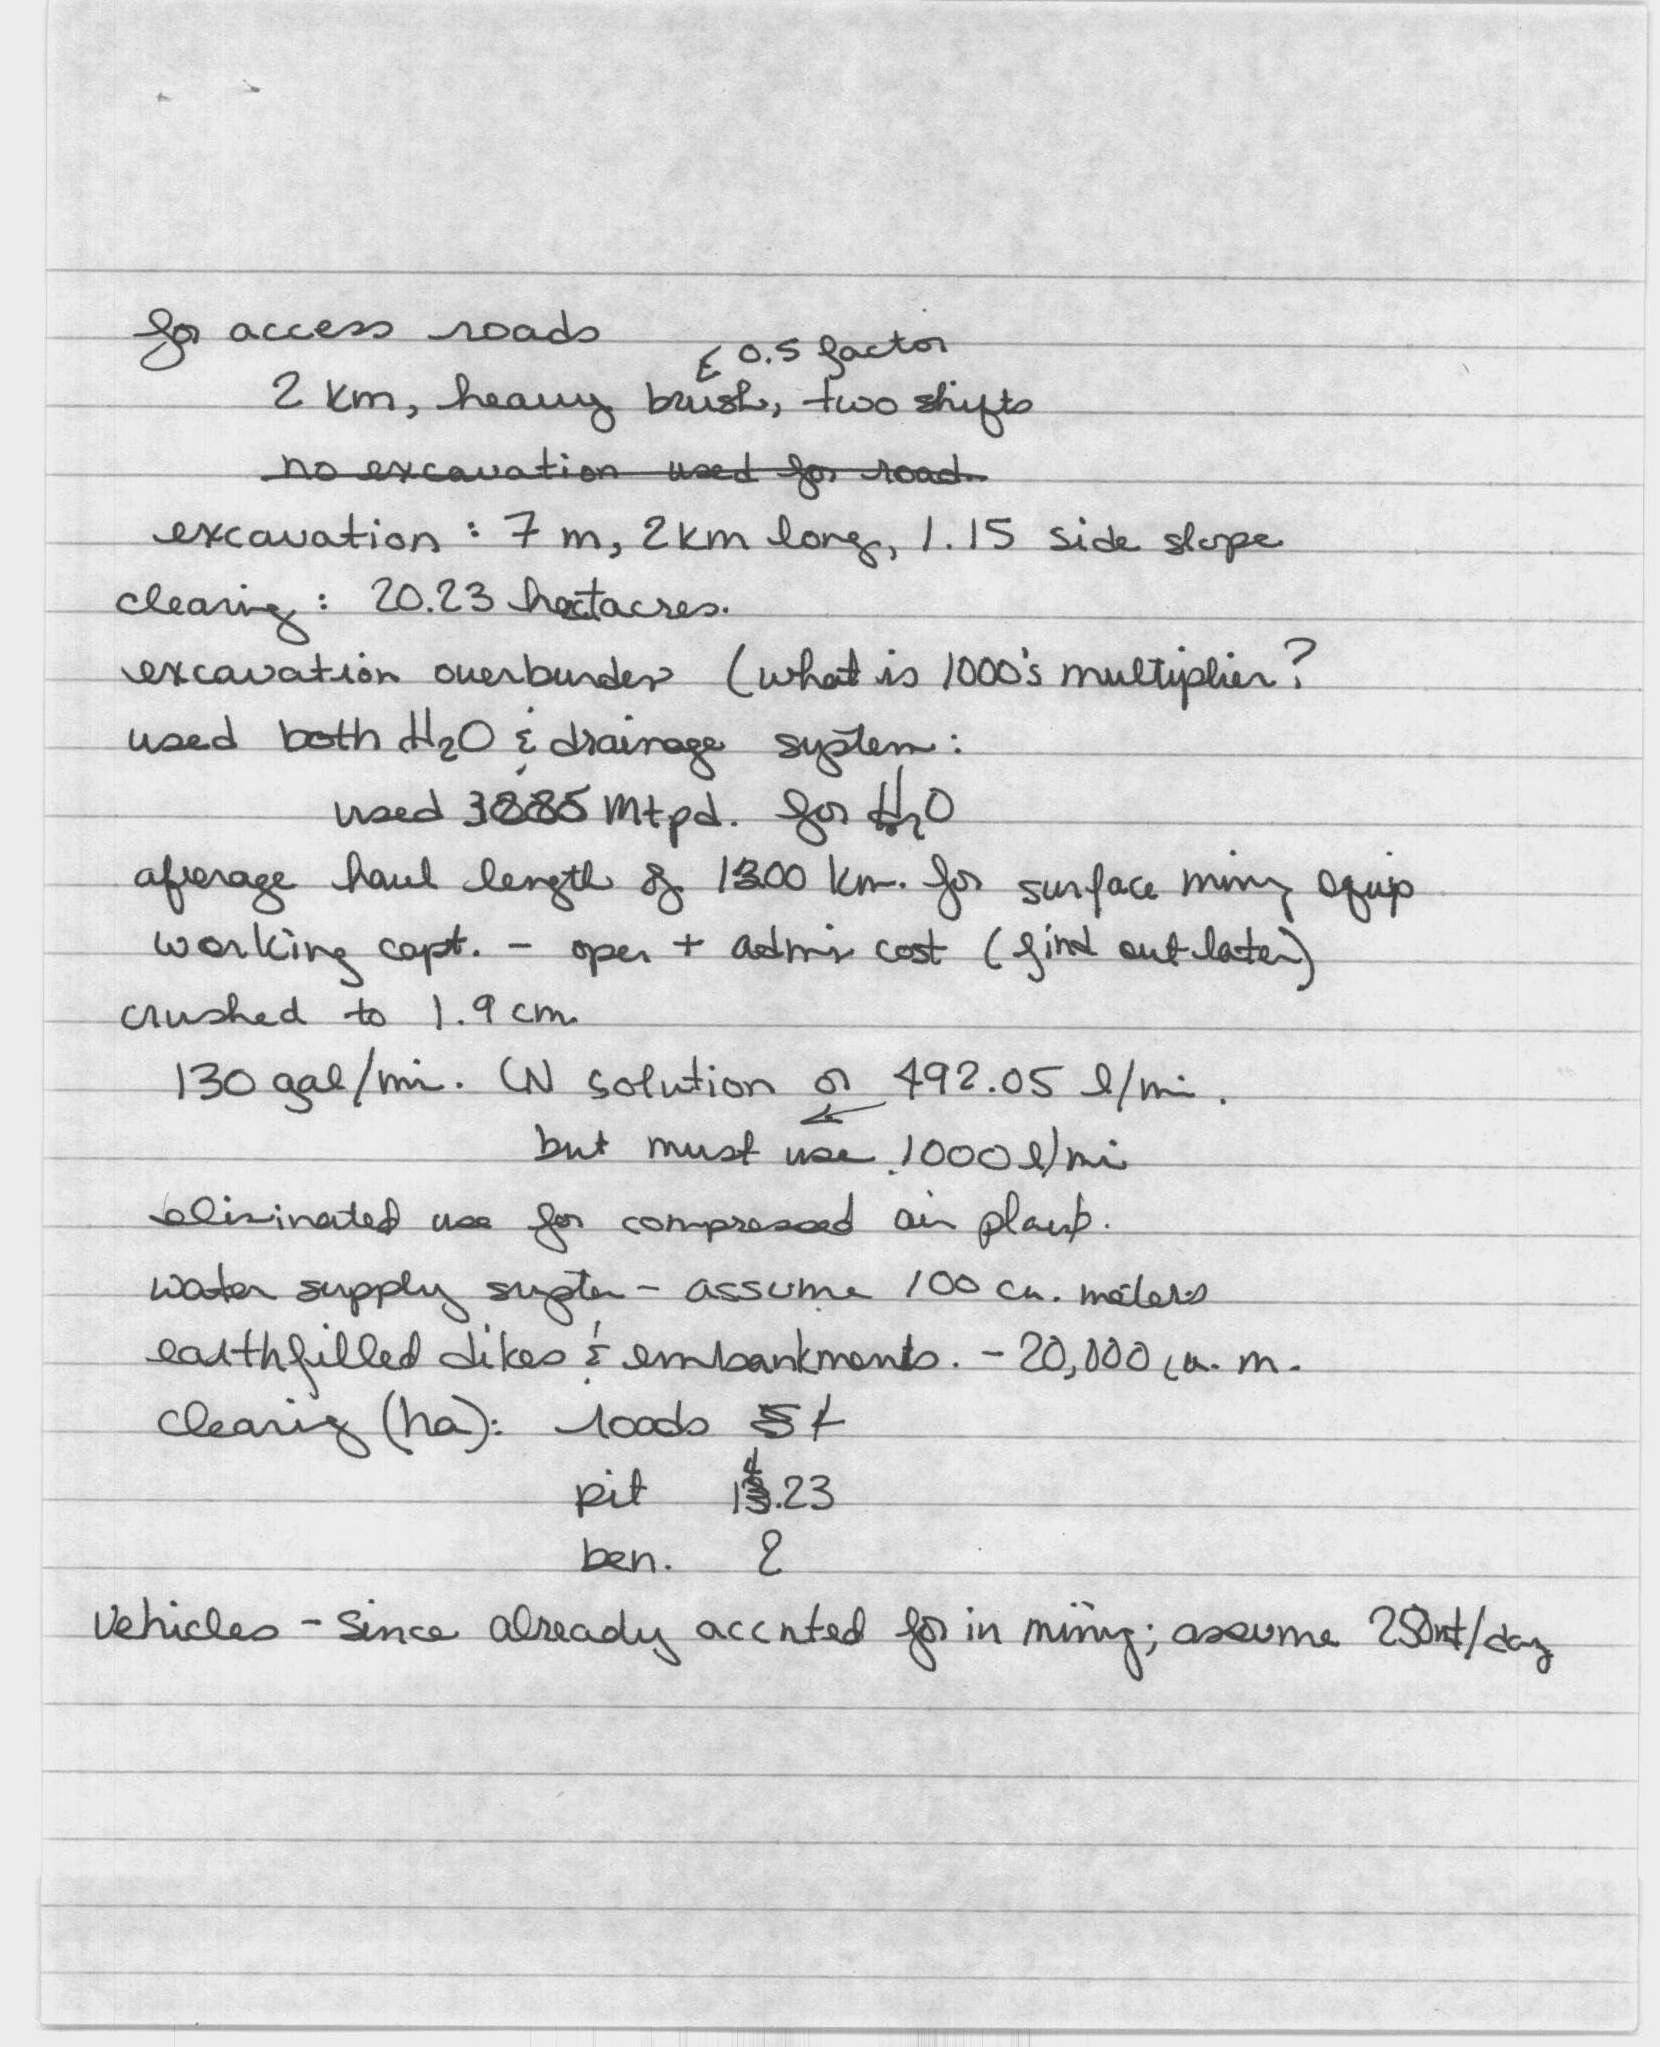 for access roads
← 0.5 factor
2 km, heavy brush, two shifts
no excavation used for road
excavation : 7 m, 2 km long, 1.15 side slope
clearing : 20.23 hectacres.
excavation overburden (what is 1000's multiplier?
used both H2O & drainage system :
used 3885 mtpd. for H2O
average haul length of 1300 km. for surface mining equip
working capt. - oper + admin cost (find out later)
crushed to 1.9 cm
130 gal/min. CN solution or 492.05 l/min.
but must use 1000 l/min
eliminated use for compressed air plant.
water supply system - assume 100 cu. meters
earthfilled dikes & embankments. - 20,000 cu. m.
clearing (ha): roads 4
pit 14.23
ben. 2
Vehicles - Since already accnted for in mining; assume 250 mt/day